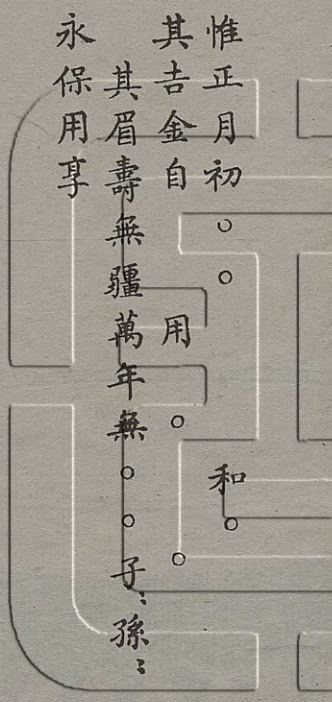 惟正月初○○　和○
其吉金自　用○　○
其眉壽無疆萬年無○○子〻孫〻
永保用享